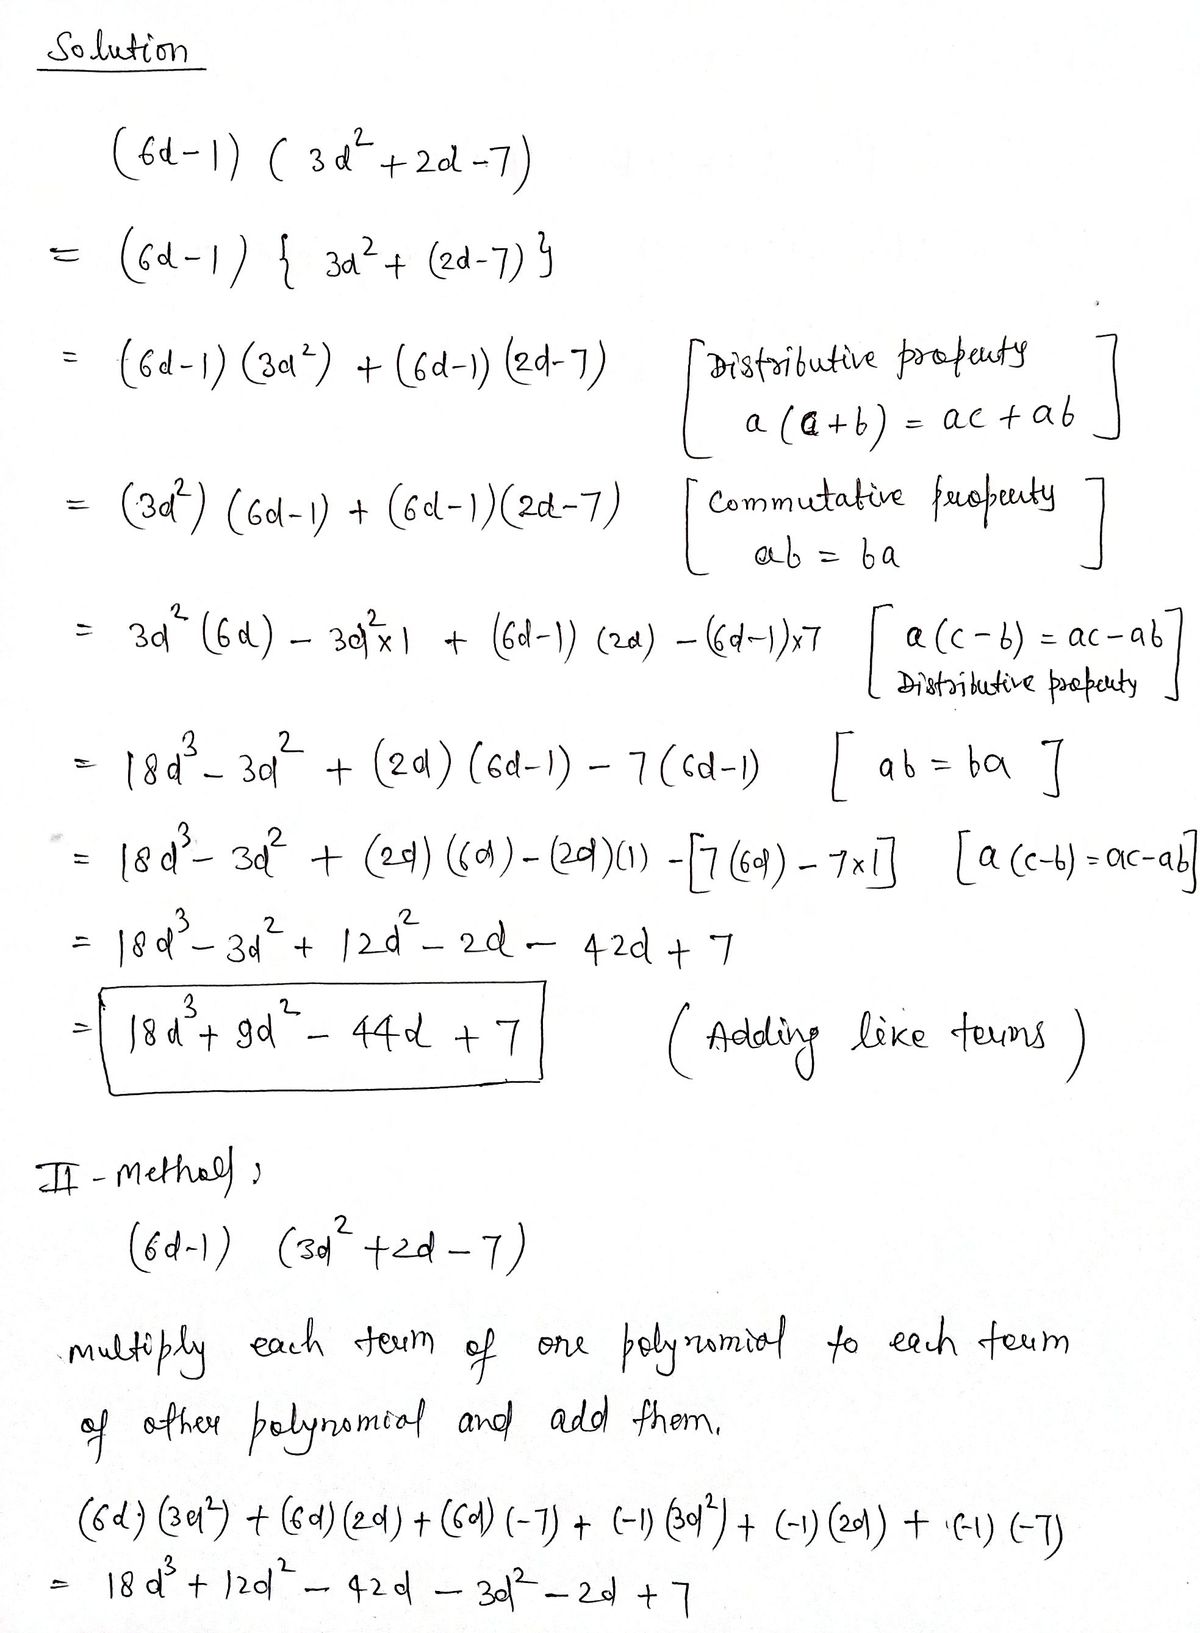 Solution
(6d-1) ( 3d² + 2d - 7)
= (6d-1) { 3d² + (2d-7) }
= (6d-1) (3d²) + (6d-1) (2d-7) [Distributive property
a (c+b) = ac + ab]
= (3d²) (6d-1) + (6d-1)(2d-7) [Commutative property
ab = ba]
= 3d² (6d) - 3d²×1 + (6d-1) (2d) - (6d-1)×7 [a (c-b) = ac-ab
Distributive property]
= 18d³ - 3d² + (2d) (6d-1) - 7 (6d-1) [ab = ba]
= 18d³ - 3d² + (2d) (6d) - (2d)(1) - [7 (6d) - 7×1] [a (c-b) = ac-ab]
= 18d³ - 3d² + 12d² - 2d - 42d + 7
= 18d³ + 9d² - 44d + 7 (Adding like terms)
II - Method;
(6d-1) (3d² + 2d - 7)
multiply each term of one polynomial to each term
of other polynomial and add them.
(6d) (3d²) + (6d) (2d) + (6d) (-7) + (-1) (3d²) + (-1) (2d) + (-1) (-7)
= 18d³ + 12d² - 42d - 3d² - 2d + 7